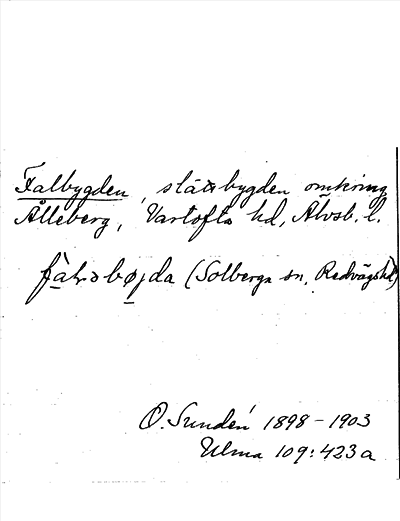 Falbygden, slättbygden omkring
Ålleberg, Vartofta hd, Älvsb. l.
(Solberga sn, Redvägs hd)
O. Sundén 1898-1903
Ulma 109:423a